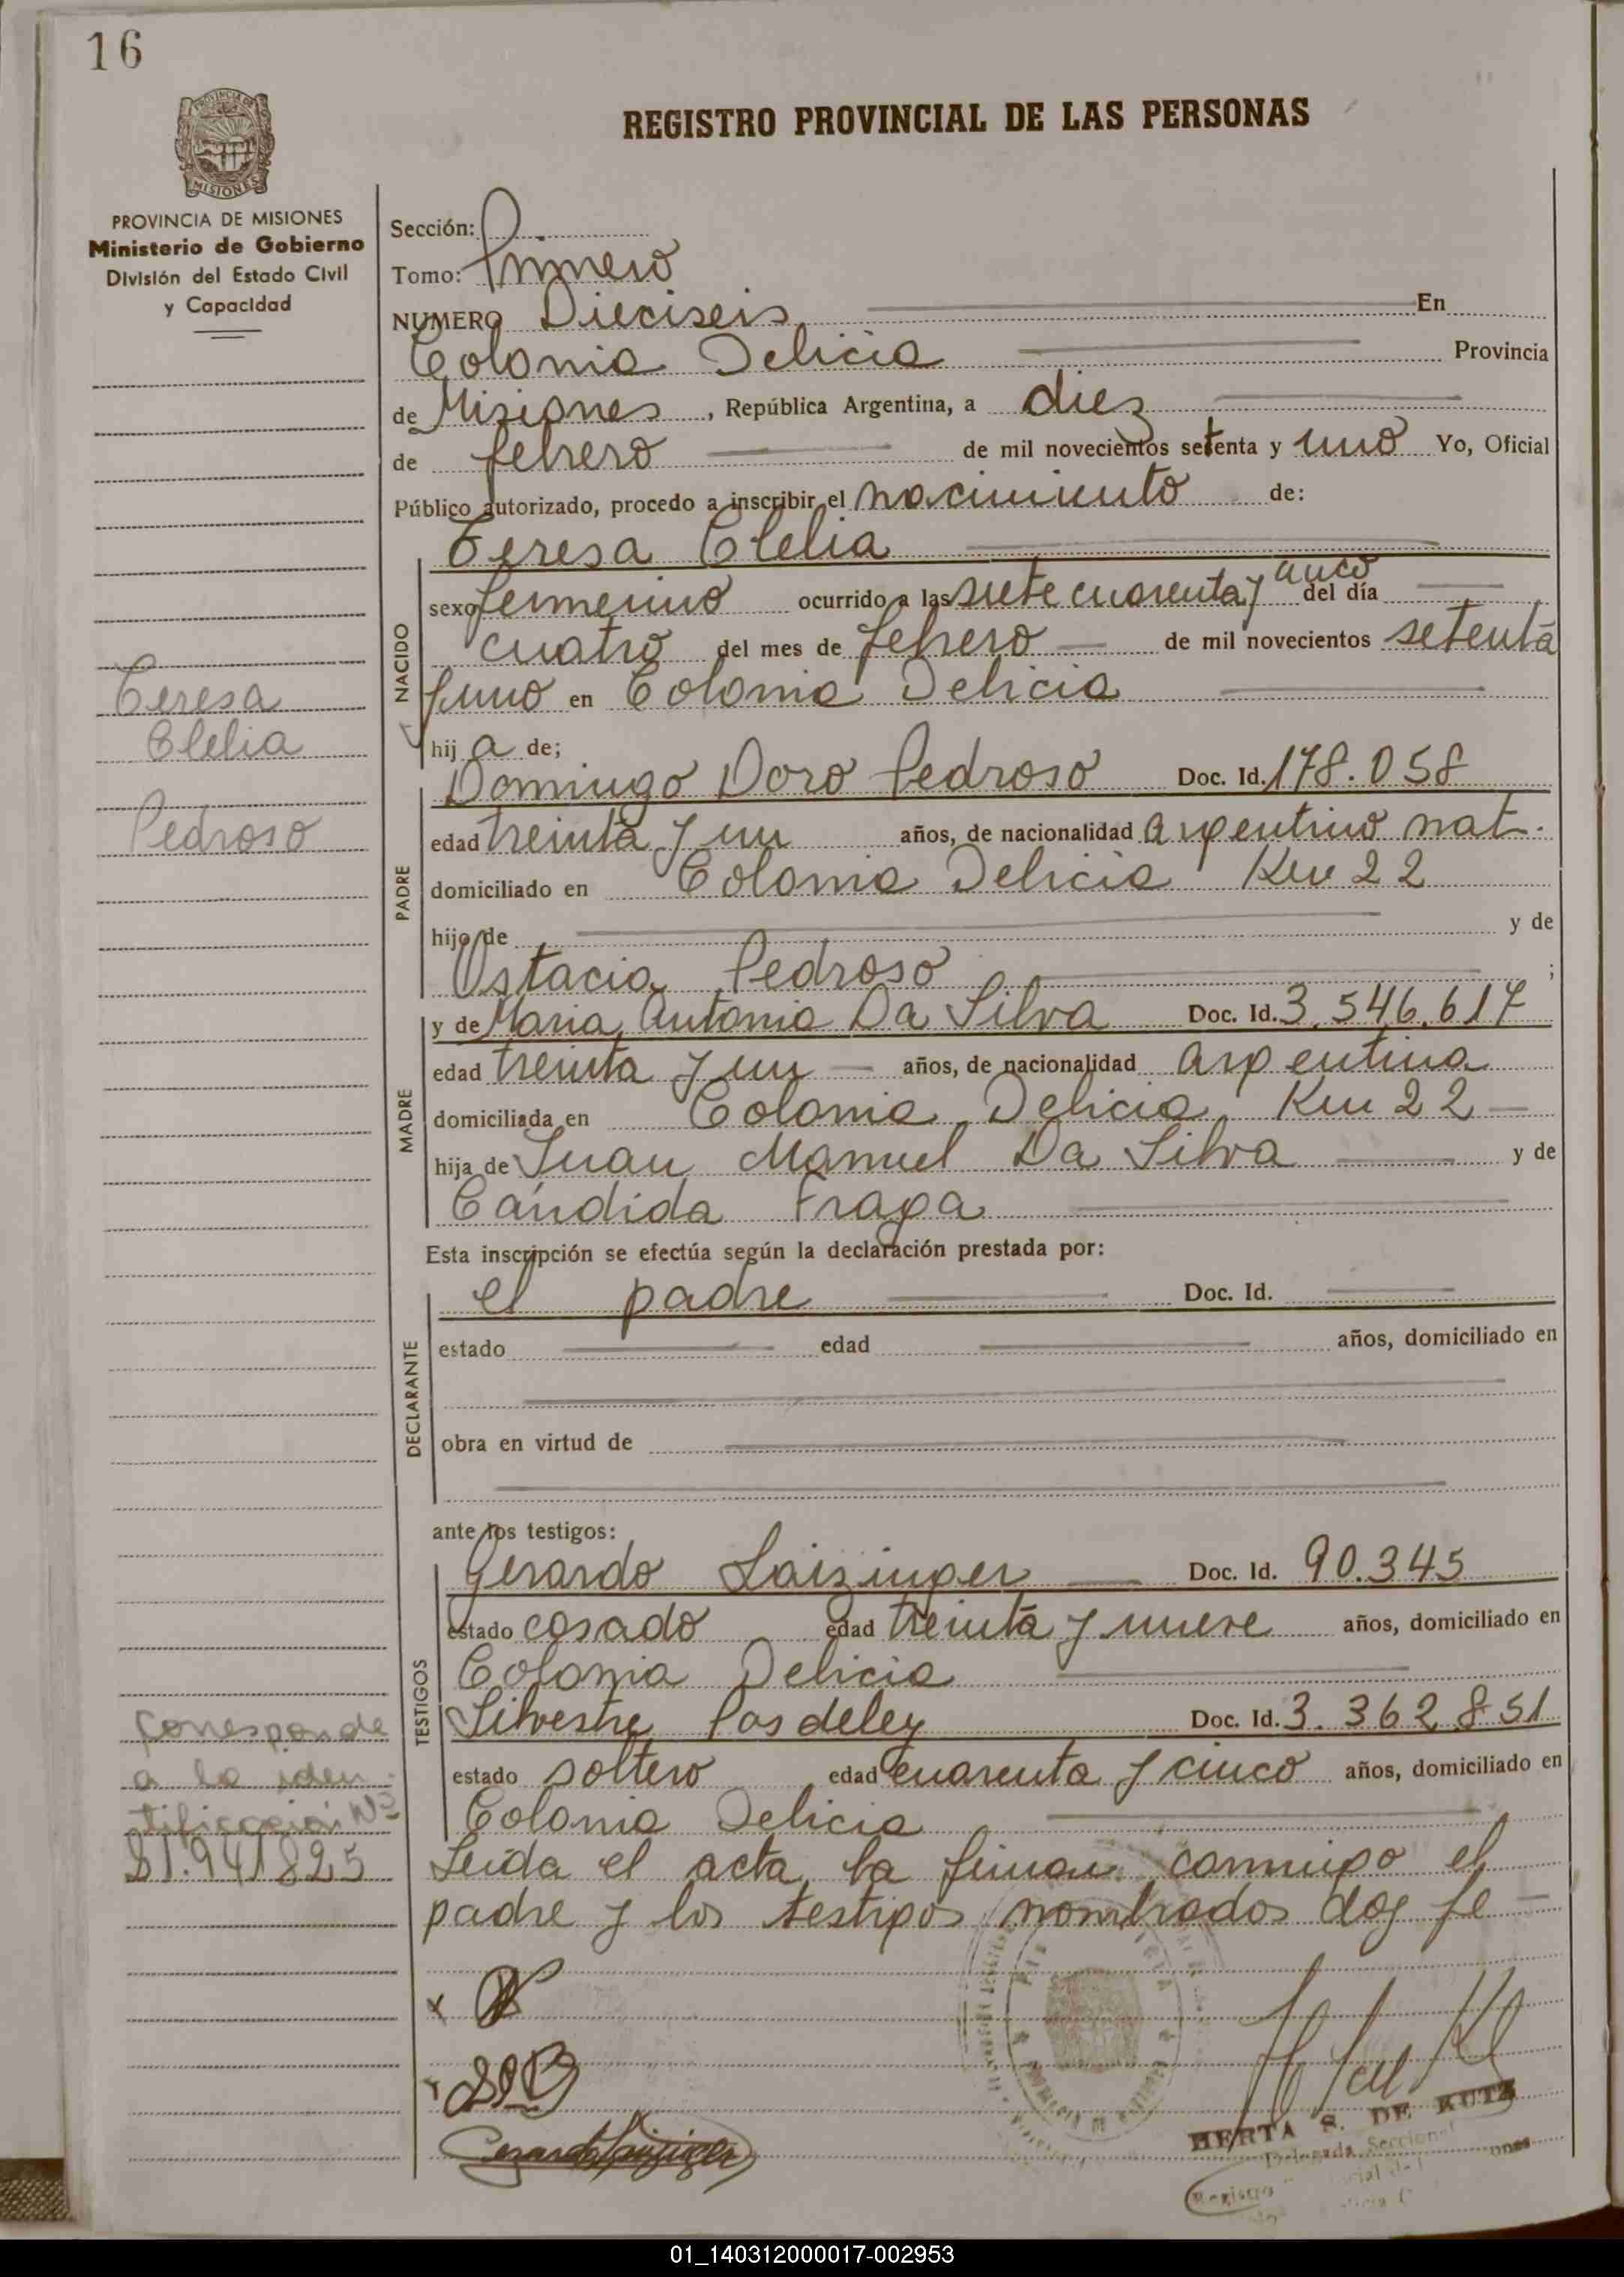 16
REGISTRO PROVINCIAL DE LAS PERSONAS
PROVINCIA DE MISIONES
Ministerio de Gobierno
División del Estado Civil
y Capacidad
Sección:
Tomo: Primero
NUMERO Dieciseis En
Colonia Delicia Provincia
de Misiones, República Argentina, a diez
de febrero de mil novecientos setenta y uno Yo, Oficial
Público autorizado, procedo a inscribir el nacimiento de:
Teresa Clelia
NACIDO
sexo femenino ocurrido a las siete cuarenta y cinco del día
cuatro del mes de febrero de mil novecientos setenta
y uno en Colonia Delicia
hij a de;
Teresa
Clelia
Pedroso
PADRE
Domingo Doro Pedroso Doc. Id. 178.058
edad treinta y un años, de nacionalidad argentino nat.
domiciliado en Colonia Delicia Km 22
hijo de y de
Ostacia Pedroso ;
MADRE
y de Maria Antonia Da Silva Doc. Id. 3.546.617
edad treinta y un años, de nacionalidad argentina
domiciliada en Colonia Delicia Km 22
hija de Juan Manuel Da Silva y de
Cándida Fraga
Esta inscripción se efectúa según la declaración prestada por:
DECLARANTE
el padre Doc. Id.
estado edad años, domiciliado en
obra en virtud de
ante los testigos:
TESTIGOS
Gerardo Laizinger Doc. Id. 90.345
estado casado edad treinta y nueve años, domiciliado en
Colonia Delicia
Silvestre Posdeley Doc. Id. 3.362.851
estado soltero edad cuarenta y cinco años, domiciliado en
Colonia Delicia
Corresponde
a la iden-
tificación Nº
21.941825
Leida el acta, la firman conmigo el
padre y los testigos nombrados doy fe
HERTA S. DE KUTZ
Delegada Seccional
Registro
01_140312000017-002953